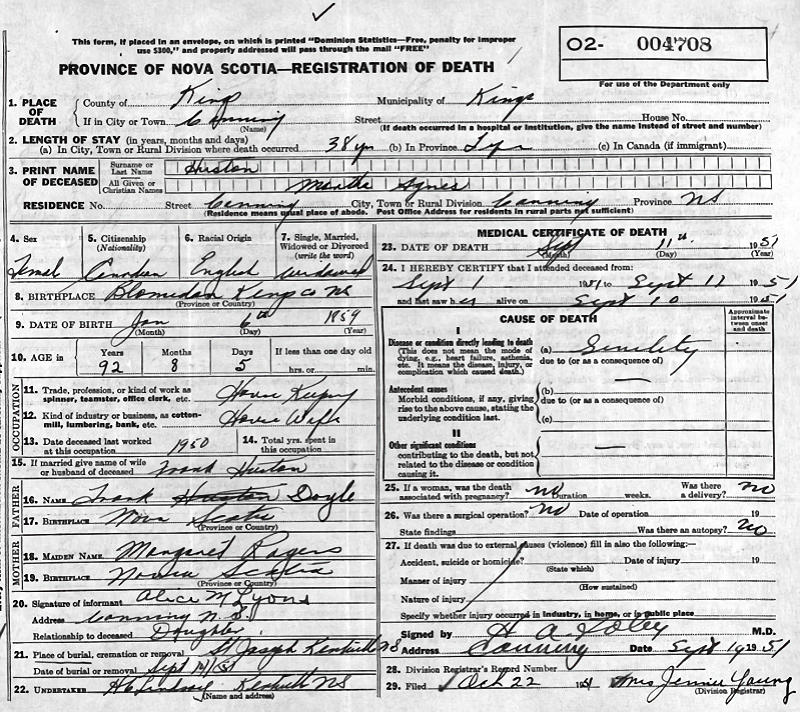 This form, if placed in an envelope, on which is printed "Dominion Statistics—Free, penalty for improper
use $300," and properly addressed will pass through the mail "FREE"
PROVINCE OF NOVA SCOTIA—REGISTRATION OF DEATH
O2- 004708
For use of the Department only
1. PLACE OF DEATH
County of Kings Municipality of Kings
If in City or Town Canning Street House No.
(Name) (If death occurred in a hospital or institution, give the name instead of street and number)
2. LENGTH OF STAY (in years, months and days)
(a) In City, Town or Rural Division where death occurred 38 yrs (b) In Province Life (c) In Canada (if immigrant)
3. PRINT NAME OF DECEASED
Surname or Last Name Huston
All Given or Christian Names Martha Agnes
RESIDENCE No. Street Canning City, Town or Rural Division Canning Province NS
(Residence means usual place of abode. Post Office Address for residents in rural parts not sufficient)
4. Sex Female
5. Citizenship (Nationality) Canadian
6. Racial Origin English
7. Single, Married, Widowed or Divorced (write the word) widowed
8. BIRTHPLACE Blomidon Kings Co NS
(Province or Country)
9. DATE OF BIRTH Jan 6th 1859
(Month) (Day) (Year)
10. AGE in Years Months Days If less than one day old
92 8 5 hrs. or min.
OCCUPATION
11. Trade, profession, or kind of work as spinner, teamster, office clerk, etc. House Keeping
12. Kind of industry or business, as cotton-mill, lumbering, bank, etc. House Wife
13. Date deceased last worked at this occupation 1950
14. Total yrs. spent in this occupation
15. If married give name of wife or husband of deceased Frank Huston
FATHER
16. NAME Frank Huston Doyle
17. BIRTHPLACE Nova Scotia
(Province or Country)
MOTHER
18. MAIDEN NAME Margaret Rogers
19. BIRTHPLACE Nova Scotia
(Province or Country)
20. Signature of informant Alice M Lyons
Address Canning N.S.
Relationship to deceased Daughter
21. Place of burial, cremation or removal St Joseph Kentville NS
Date of burial or removal Sept 14/51
22. UNDERTAKER Lindsay Kentville NS
(Name and address)
MEDICAL CERTIFICATE OF DEATH
23. DATE OF DEATH Sept 11th 1951
(Month) (Day) (Year)
24. I HEREBY CERTIFY that I attended deceased from:
Sept 1 1951 to Sept 11 1951
and last saw her alive on Sept 10 1951
CAUSE OF DEATH
Approximate interval between onset and death
I
Disease or condition directly leading to death
(This does not mean the mode of dying, e.g., heart failure, asthenia, etc. It means the disease, injury, or complication which caused death.)
(a) Senility
due to (or as a consequence of)
Antecedent causes
Morbid conditions, if any, giving rise to the above cause, stating the underlying condition last.
(b) —
due to (or as a consequence of)
(c)
II
Other significant conditions
contributing to the death, but not related to the disease or condition causing it.
—
25. If a woman, was the death associated with pregnancy? no Duration weeks. Was there a delivery? no
26. Was there a surgical operation? no Date of operation 19
State findings Was there an autopsy? no
27. If death was due to external causes (violence) fill in also the following:—
Accident, suicide or homicide? Date of injury 19
(State which)
Manner of injury
(How sustained)
Nature of injury
Specify whether injury occurred in industry, in home, or in public place
Signed by H A Foley M.D.
Address Canning Date Sept 19 1951
28. Division Registrar's Record Number
29. Filed Oct 22 1951 Mrs Jennie Young
(Division Registrar)